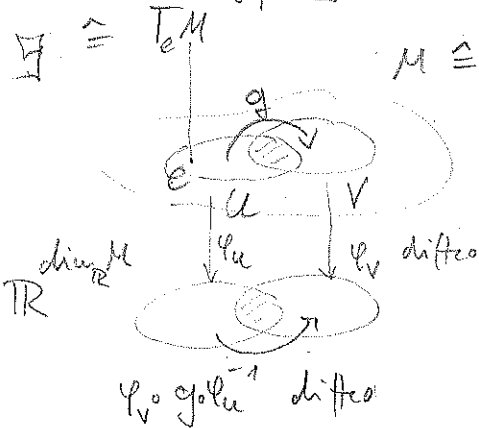 𝔤 ≙ TₑM
M ≙
g
e
U V
φ_U φ_V diffeo
ℝ^{dim_ℝ M}
φ_V ∘ g ∘ φ_U^{-1} diffeo